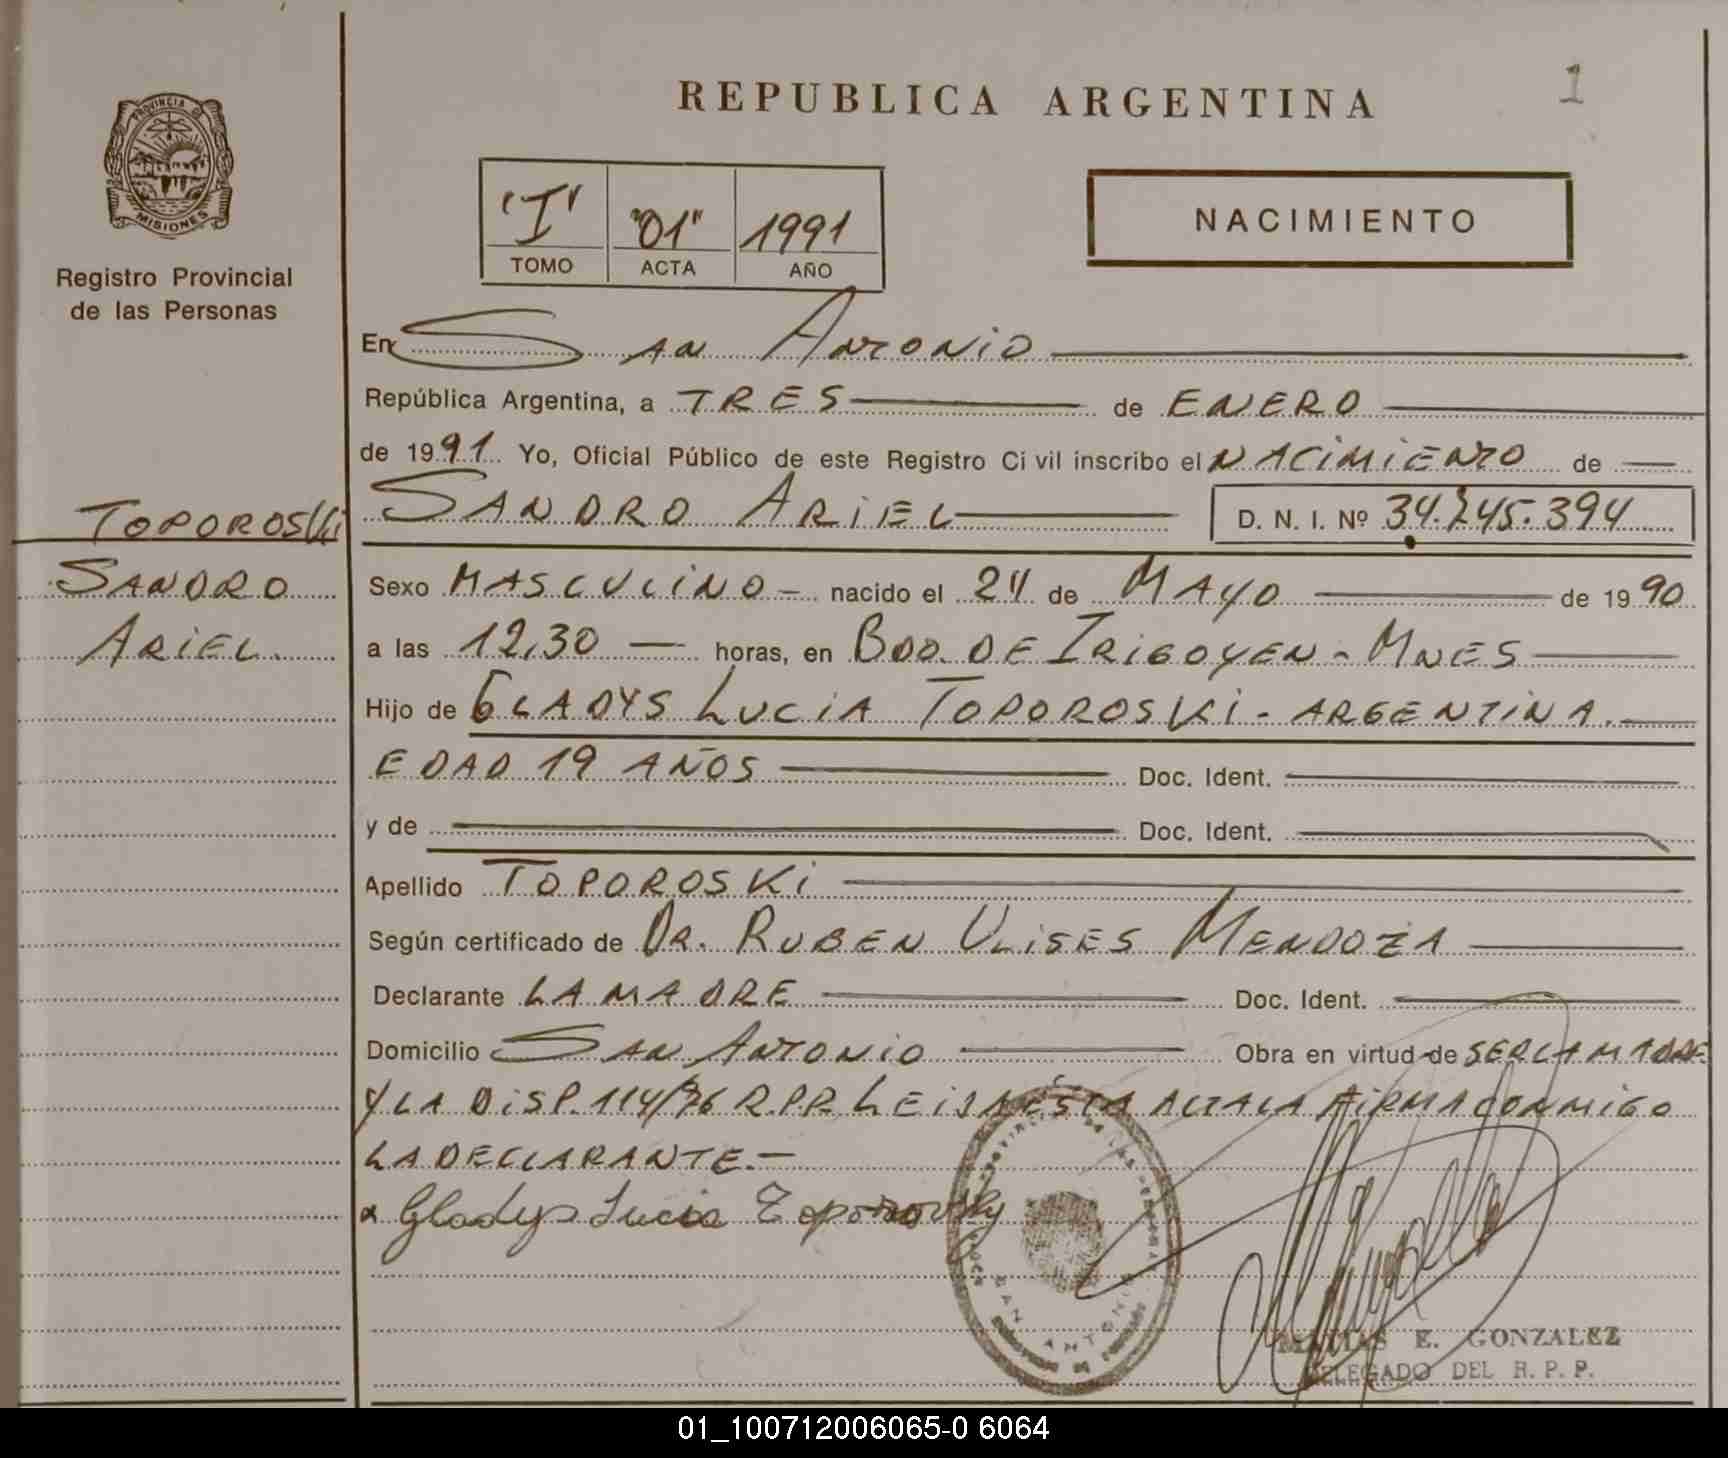 REPUBLICA ARGENTINA
1
PROVINCIA DE
MISIONES
Registro Provincial
de las Personas
"I" "01" 1991
TOMO ACTA AÑO
NACIMIENTO
En SAN ANTONIO
República Argentina, a TRES de ENERO
de 1991 Yo, Oficial Público de este Registro Civil inscribo el NACIMIENTO de
SANDRO ARIEL D. N. I. Nº 34.245.394
TOPOROSKI
SANDRO
ARIEL.
Sexo MASCULINO - nacido el 24 de MAYO de 1990
a las 12,30 horas, en BDO. DE IRIGOYEN - MNES
Hijo de GLADYS LUCIA TOPOROSKI - ARGENTINA.
EDAD 19 AÑOS Doc. Ident.
y de Doc. Ident.
Apellido TOPOROSKI
Según certificado de DR. RUBEN ULISES MENDOZA
Declarante LA MADRE Doc. Ident.
Domicilio SAN ANTONIO Obra en virtud de SER LA MADRE
Y LA DISP. 114/76 R.P.P. LEIDA ESTA ACTA LA FIRMA CONMIGO
LA DECLARANTE.-
Gladys Lucia
SAN ANTONIO
MATIAS E. GONZALEZ
DELEGADO DEL R. P. P.
01_100712006065-0 6064